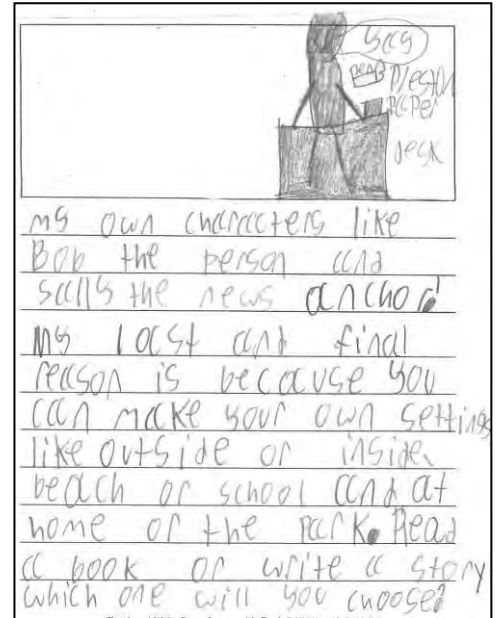 yes
Desk
Preston
paper
desk
my own characters like
Bob the person and
sally the news anchor!
My last and final
reason is because you
can make your own settings
like outside or inside,
beach or school and at
home or the park. Read
a book or write a story
which one will you choose?